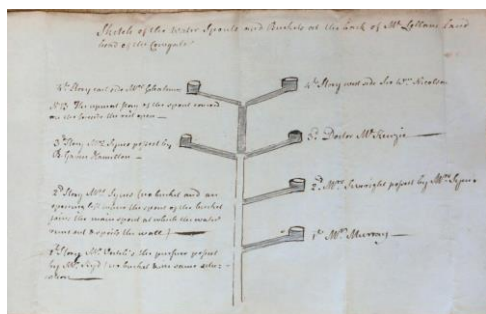 Sketch of the Water Spouts and Buckets at the back of Mr Lellans Land
head of the Cowgate
4th Story east side Mrs Grahame
NB. The upmost part of the spout
on the inside the
3d Story Mrs Symes possest by
Gavin Hamilton
2d Story Mrs Symes (no bucket and an
opening left where the spout of the bucket
joins the main spout at which the water
runs out & spoils the wall)
1st Story Mr the possest
by Mrs (no bucket & in same
4th Story west side Sir Wm Nicolson
3d. Doctor McKenzie
2d Mrs Sivwright possest by Mrs Syme
1st Mrs Murray